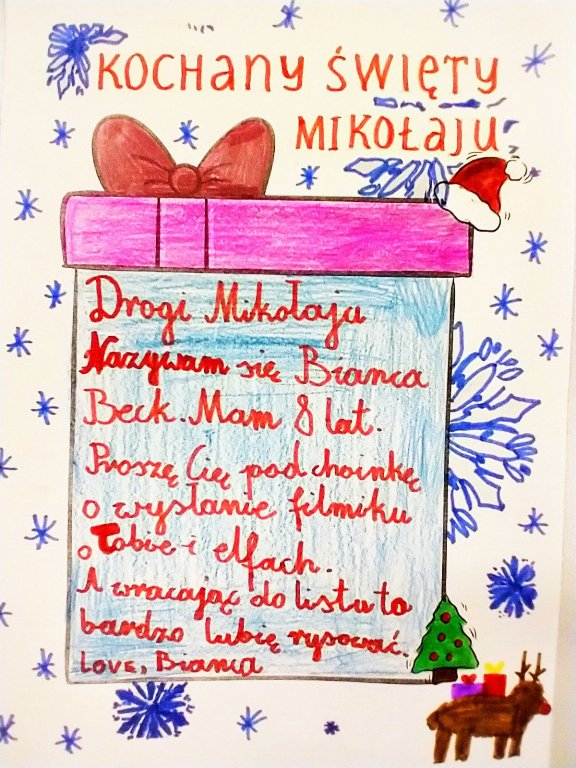 KOCHANY ŚWIĘTY
MIKOŁAJU
Drogi Mikołaju
Nazywam się Bianca
Beck. Mam 8 lat.
Proszę Cię pod choinkę
o wysłanie filmiku
o Tobie i elfach.
A wracając do listu to
bardzo lubię rysować.
LOVE, Bianca